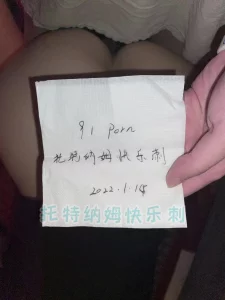 91 Porn
托特纳姆快乐刺
2022.1.14
托特纳姆快乐刺